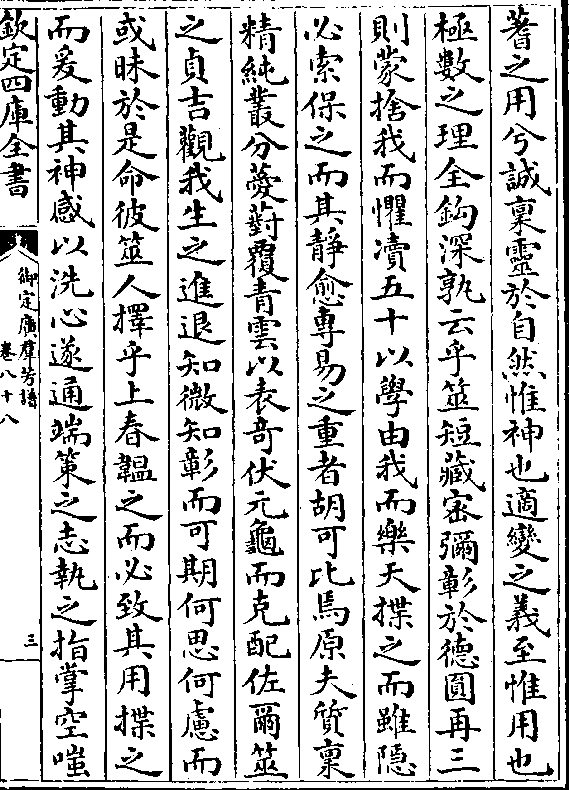 蓍之用兮誠稟靈於自然惟神也適變之義至惟用也
極數之理全鈎深孰云乎筮短藏宻彌彰於德圓再三
則蒙捨我而懼凟五十以學由我而樂天揲之而雖隠
必索保之而其靜愈専易之重者胡可比焉原夫質稟
精純叢分薆薱覆青雲以表竒伏元龜而克配佐爾筮
之貞吉觀我生之進退知微知彰而可期何思何慮而
或昧於是命彼筮人擇乎上春韞之而必致其用揲之
而爰動其神感以洗心遂通端策之志執之指掌空嗤
欽定四庫全書
御定廣羣芳譜
卷八十八
三